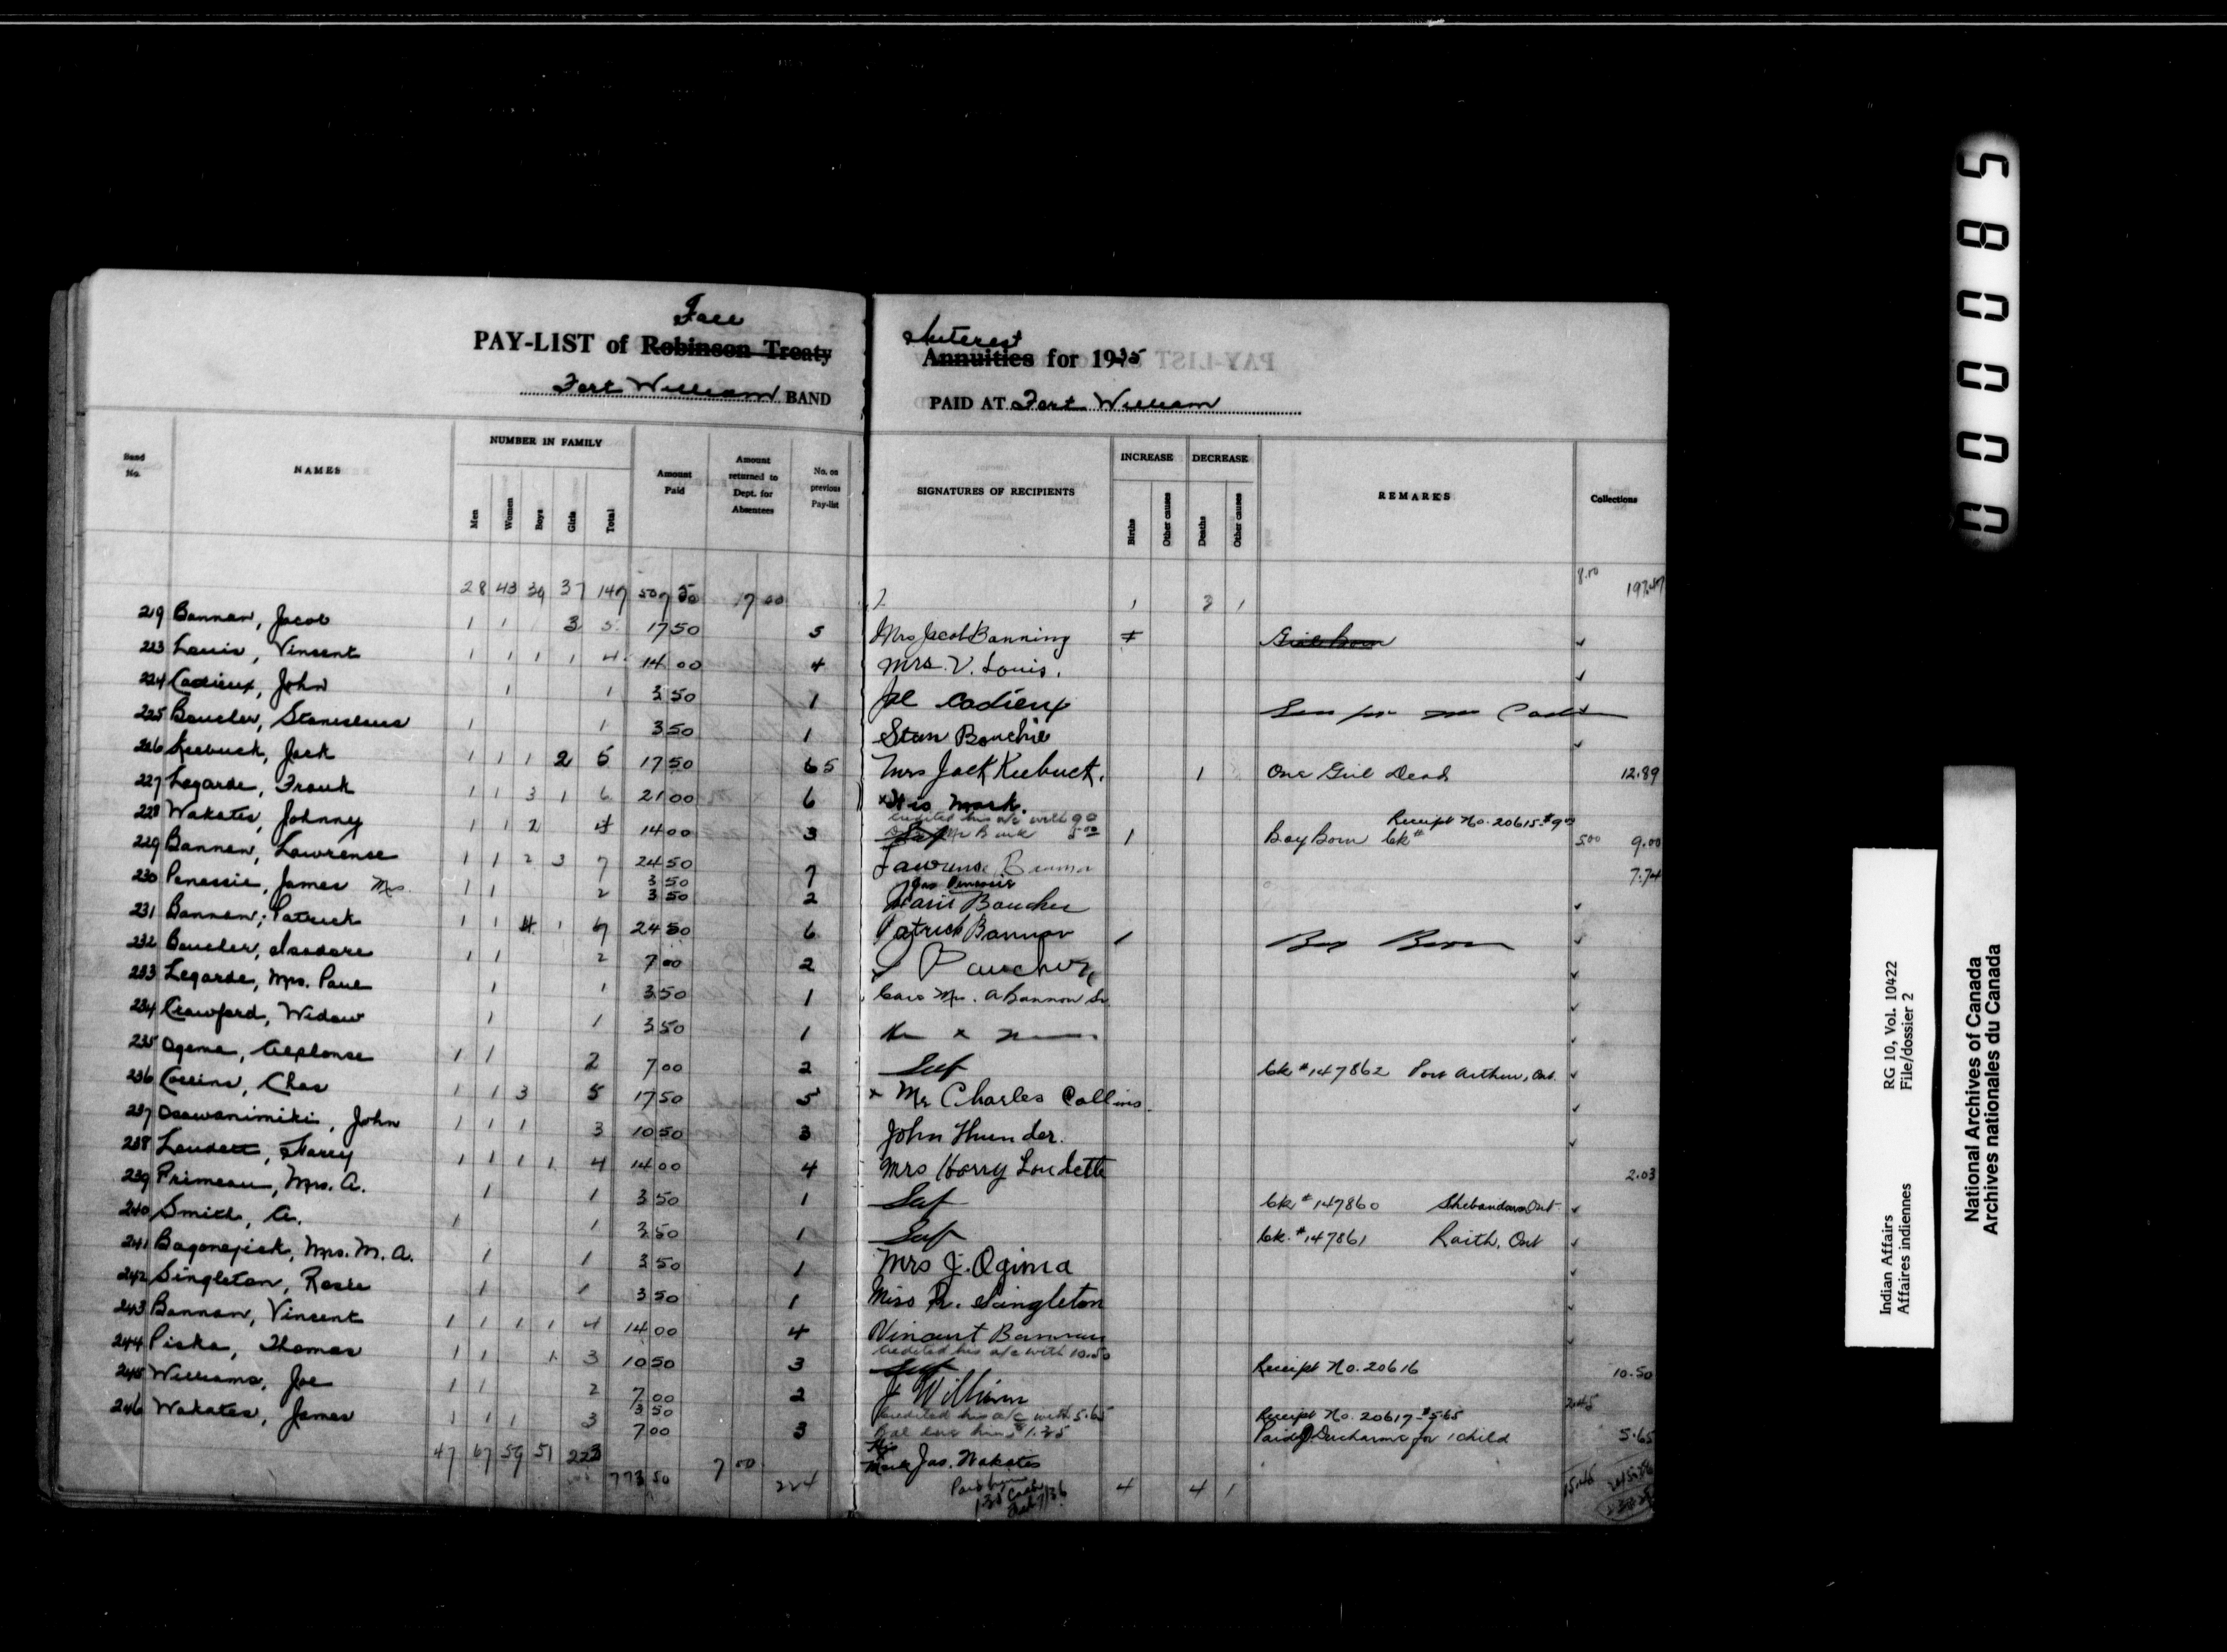 Fall
PAY-LIST of Robinson Treaty
Fort William BAND
Interest
Annuities for 1935
PAID AT Fort William
Band No. NAMES NUMBER IN FAMILY Men Women Boys Girls Total Amount Paid Amount returned to Dept. for Absentees No. on previous Pay-list SIGNATURES OF RECIPIENTS INCREASE Births Other causes DECREASE Deaths Other causes REMARKS Collections
28 43 39 37 147 507 50 17 00 1 3 1 8.00
219 Bannan, Jacob 1 1 3 5 17 50 5 Mrs Jacob Banning Girl Born
223 Louis, Vincent 1 1 1 1 4 14 00 4 Mrs. V. Louis.
224 Cadieux, John 1 1 3 50 1 Joe Cadieux
225 Boucher, Stanislaus 1 1 3 50 1 Stan Bouchie
226 Keebuck, Jack 1 1 1 2 5 17 50 6 5 Mrs Jack Keebuck. 1 One Girl Dead 12.89
227 Legarde, Frank 1 1 3 1 6 21 00 6 x His Mark.
228 Wakates, Johnny 1 1 2 4 14 00 3 credited his a/c with 9 00 1 Boy Born Ck # Receipt No. 20615-#9 00 5 00 9.00
229 Bannan, Lawrence 1 1 2 3 7 24 50 7 Lawrence Bannon 7.74
230 Penassie, James Mrs. 1 1 2 3 50 3 50 2 Jas Penassie
Marie Boucher
231 Bannan, Patrick 1 1 4 1 7 24 50 6 Patrick Bannon 1 Boy Born
232 Boucher, Isadore 1 1 2 7 00 2 Boucher
233 Legarde, Mrs. Paul 1 1 3 50 1 Care Mrs. A Bannon Sr
234 Crawford, Widow 1 1 3 50 1 x
235 Ogema, Alphonse 1 1 2 7 00 2 Self Ck #147862 Port Arthur, Ont.
236 Collins, Chas 1 1 3 5 17 50 5 x Mr Charles Collins.
237 Osawanimiki, John 1 1 1 3 10 50 3 John Thunder.
238 Loudett, Harry 1 1 1 1 4 14 00 4 Mrs Harry Loudette 2.03
239 Primeau, Mrs. A. 1 1 3 50 1 Self Ck #147860 Shebandowan Ont
240 Smith, A. 1 1 3 50 1 Self Ck. #147861 Raith, Ont
241 Bagonejick, Mrs. M. A. 1 1 3 50 1 Mrs J. Ogima
242 Singleton, Rosie 1 1 3 50 1 Miss R. Singleton
243 Bannan, Vincent 1 1 1 1 4 14 00 4 Vincent Bannan
244 Piska, Thomas 1 1 1 3 10 50 3 Credited his a/c with 10.50 Self Receipt No. 20616 10.50
245 Williams, Joe 1 1 2 7 00 2 J William
246 Wakates, James 1 1 1 3 3 50 7 00 3 Credited his a/c with 5.65 Receipt No. 20617-#5.65
Bal due him 1.35 Paid J. Ducharme for 1 child 5.65
His Mark Jas. Wakates
47 67 59 51 223 773 50 7 00 224 4 4 1 15.45
Indian Affairs RG 10, Vol. 10422
Affaires indiennes File/dossier 2
National Archives of Canada
Archives nationales du Canada
000085